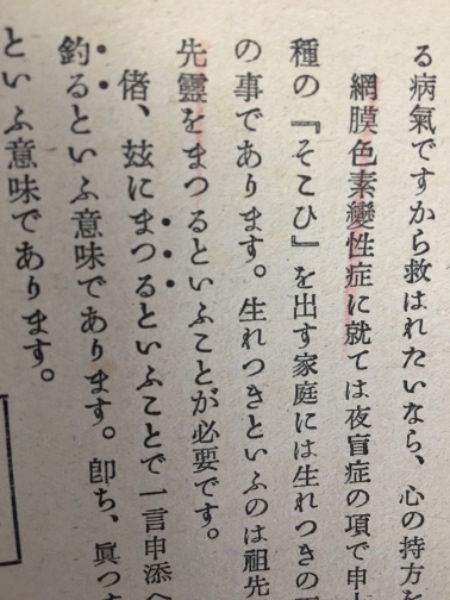 る病氣ですから救はれたいなら、心の持方を
網膜色素變性症に就ては夜盲症の項で申
種の『そこひ』を出す家庭には生れつきの
の事であります。生れつきといふのは祖先
先靈をまつるといふことが必要です。
偖、玆にまつるといふことで一言申添へ
釣るといふ意味であります。卽ち、眞つ
といふ意味であります。